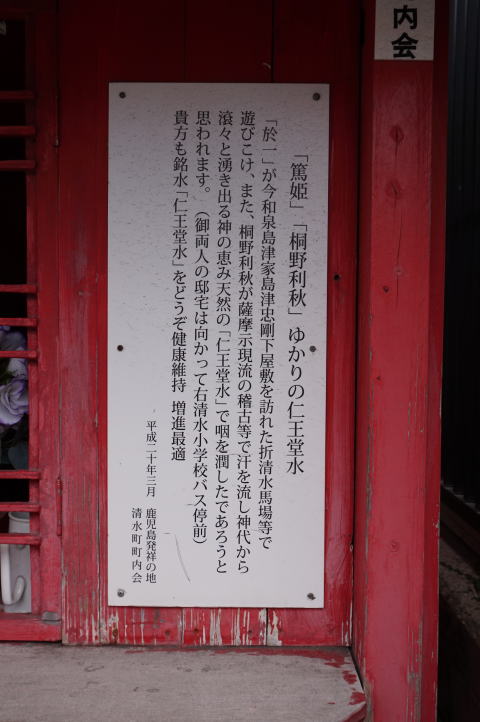 内会
「篤姫」「桐野利秋」ゆかりの仁王堂水
「於一」が今和泉島津家島津忠剛下屋敷を訪れた折清水馬場等で
遊びこけ、また、桐野利秋が薩摩示現流の稽古等で汗を流し神代から
滾々と湧き出る神の恵み天然の「仁王堂水」で咽を潤したであろうと
思われます。（御両人の邸宅は向かって右清水小学校バス停前）
貴方も銘水「仁王堂水」をどうぞ健康維持 増進最適
平成二十年三月 鹿児島発祥の地
清水町町内会